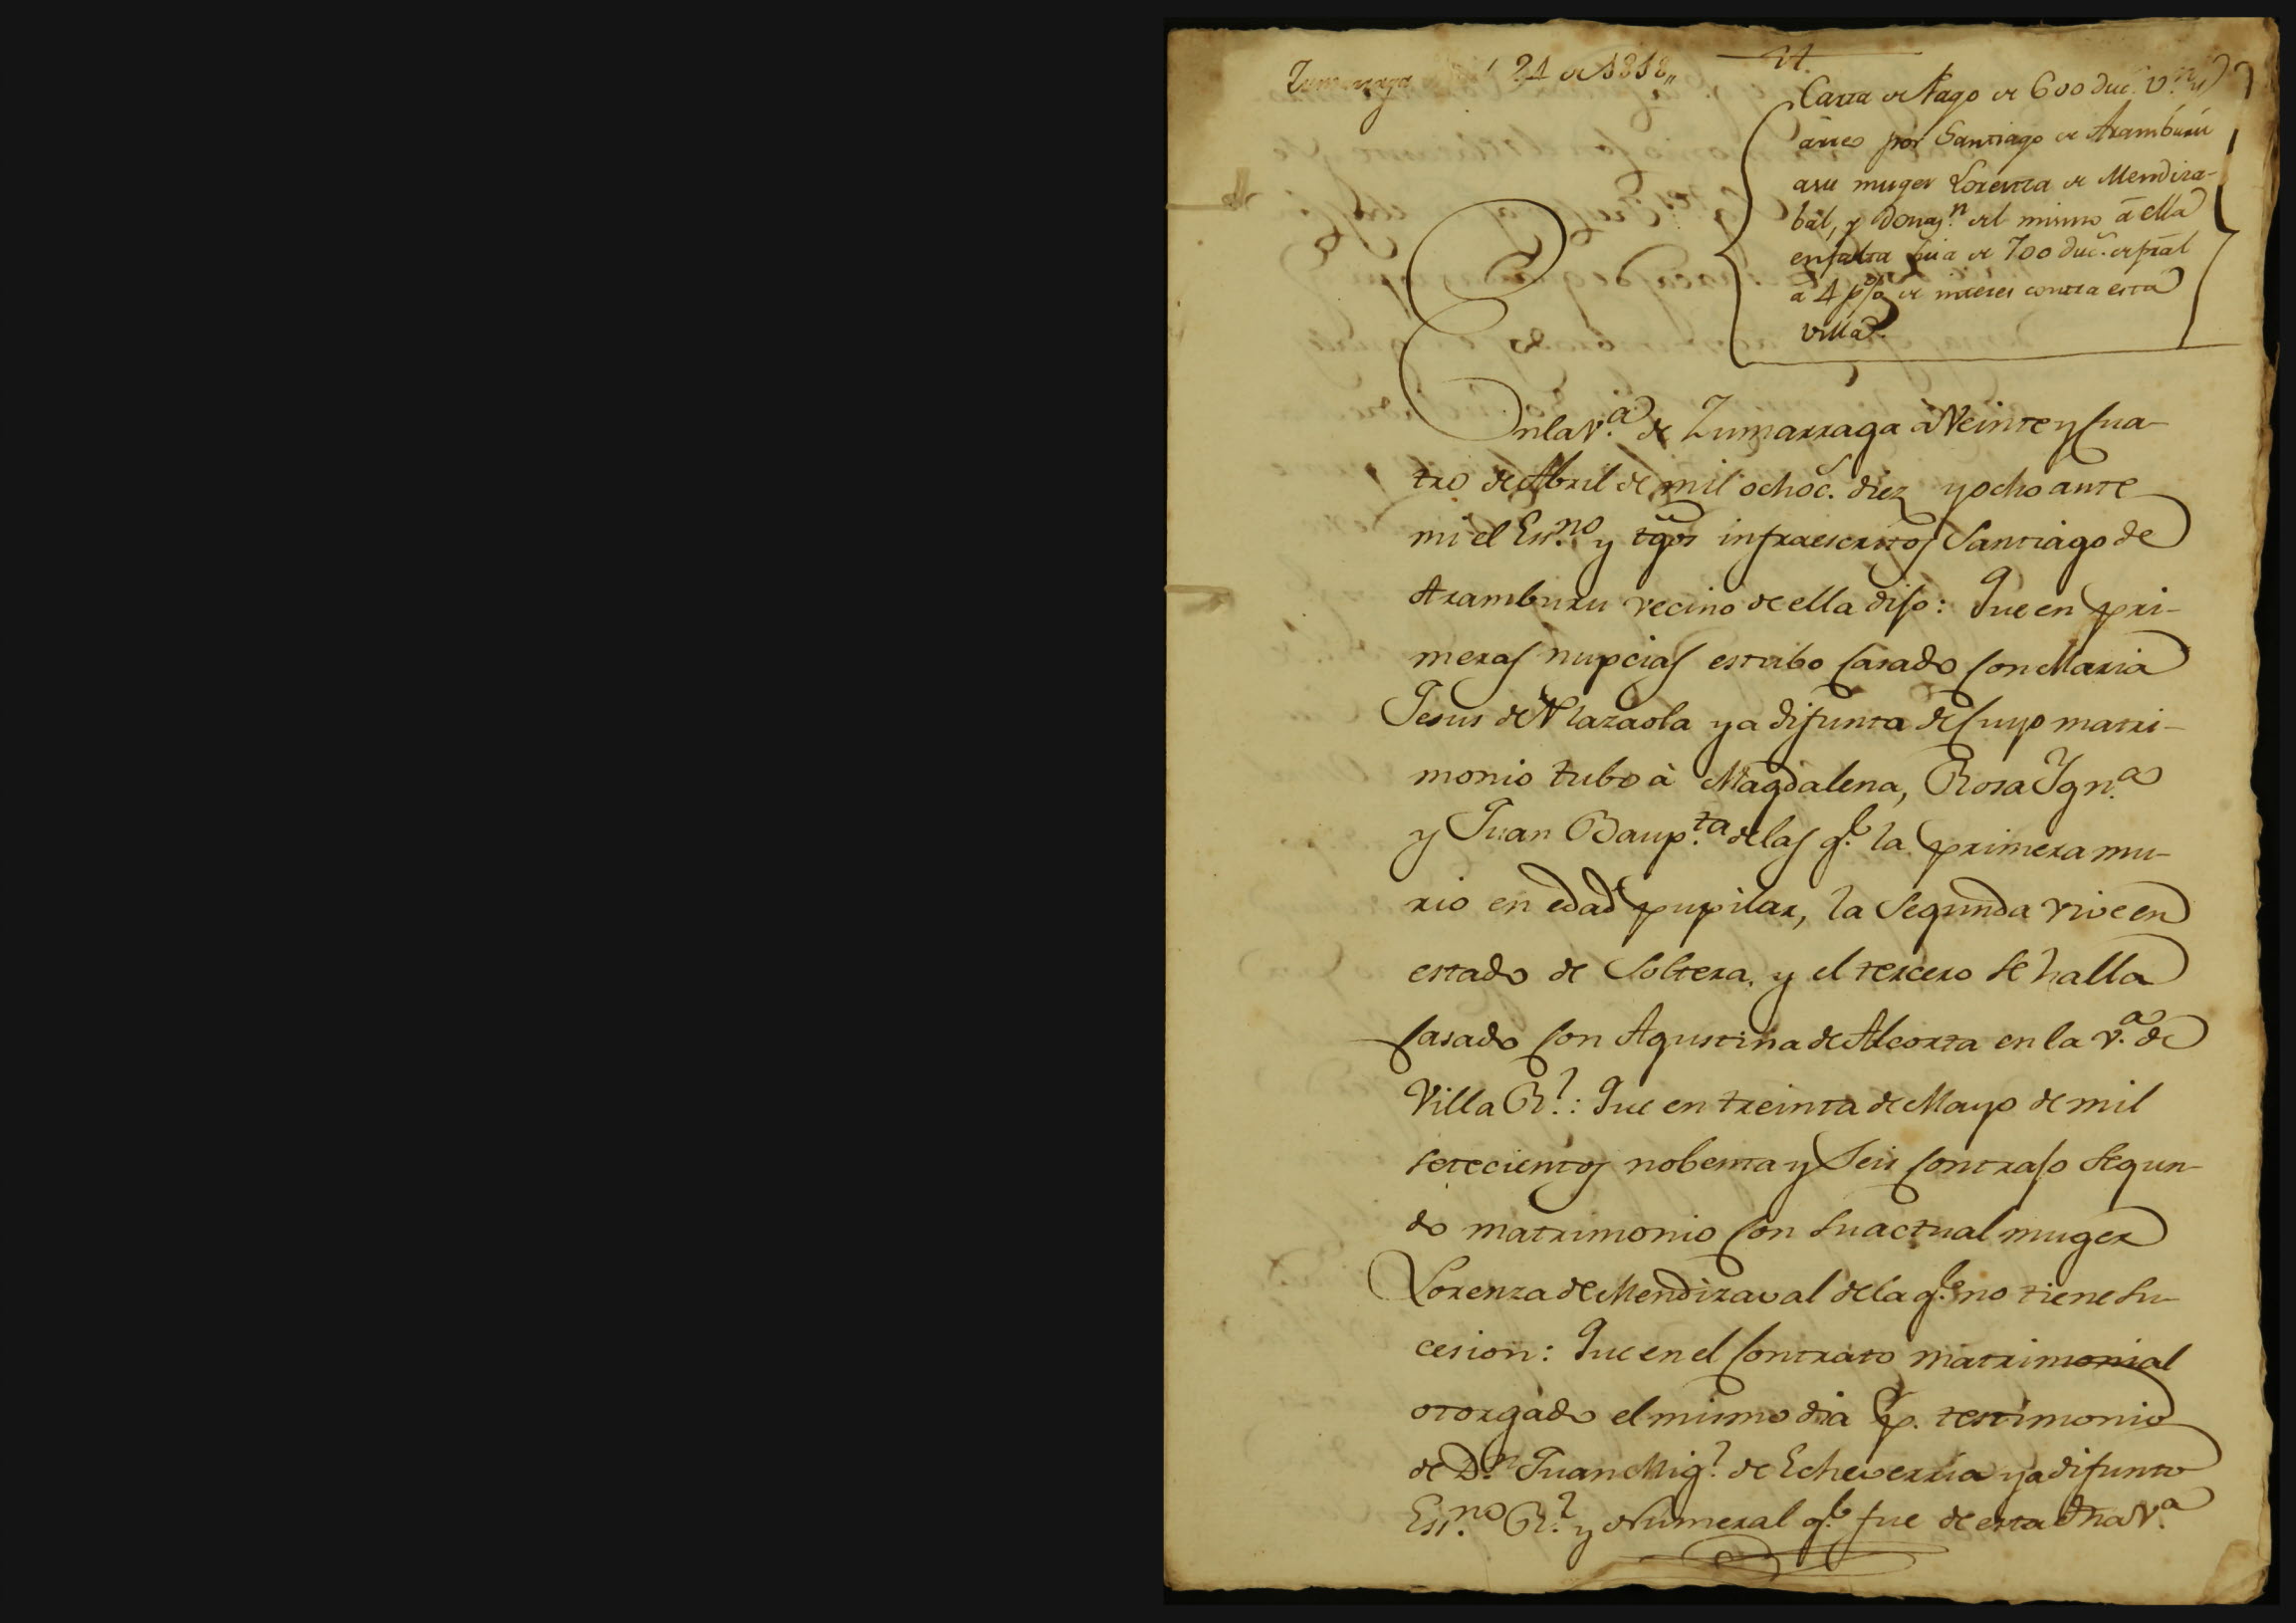 Zumarraga 24 de 1818,,
Carta de Pago de 600 duc.s v.n y
arreo por Santiago de Aramburu
asu muger Lorenza de Mendiza-
bal, y Donaz.n del mismo â ella
en falta sùia de 700 duc.s de pral
à 4 p% de interes contra esta
villa.
Enla v.a de Zumarraga à Veinte y Cua-
tro de Abril de mil ochoc.s diez y ocho ante
mi el Ess.no y tgos infraescritos Santiago de
Aramburu vecino de ella dijo: Que en pri-
meras nupcias estubo Casado Con Maria
Jesus de Plazaola ya difunta de Cuyo matri-
monio tubo à Magdalena, Rosa Ygn.a
y Juan Baup.ta delas q.e la primera mu-
rio en edad pupilar, la Segunda vive en
estado de Soltera. y el tercero se halla
Casado Con Agustina de Alcorta en la v.a de
Villa R.l: Que en treinta de Mayo de mil
setecientos nobenta y Seis Contrajo Segun-
do matrimonio Con su actual muger
Lorenza de Mendizaval dela q.e no tiene Su-
cesion: Que en el Contrato matrimonial
otorgado el mismo dia p. testimonio
de D.n Juan Mig.l de Echeverria ya difunto
Ess.no R.l y Numeral q.e fue de esta dha v.a